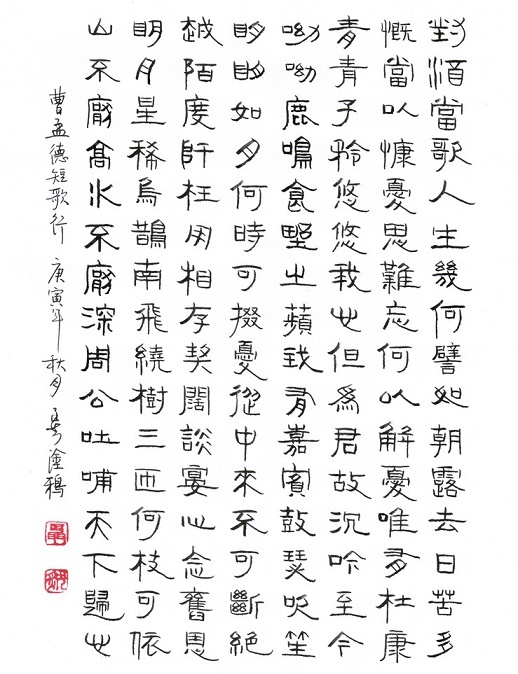 對酒當歌人生幾何譬如朝露去日苦多
慨當以慷憂思難忘何以解憂唯有杜康
青青子衿悠悠我心但爲君故沉吟至今
呦呦鹿鳴食野之蘋我有嘉賓鼓瑟吹笙
明明如月何時可掇憂從中來不可斷絕
越陌度阡枉用相存契闊談宴心念舊恩
明月星稀烏鵲南飛繞樹三匝何枝可依
山不厭高水不厭深周公吐哺天下歸心
曹孟德短歌行 庚寅年秋月 塗鴉